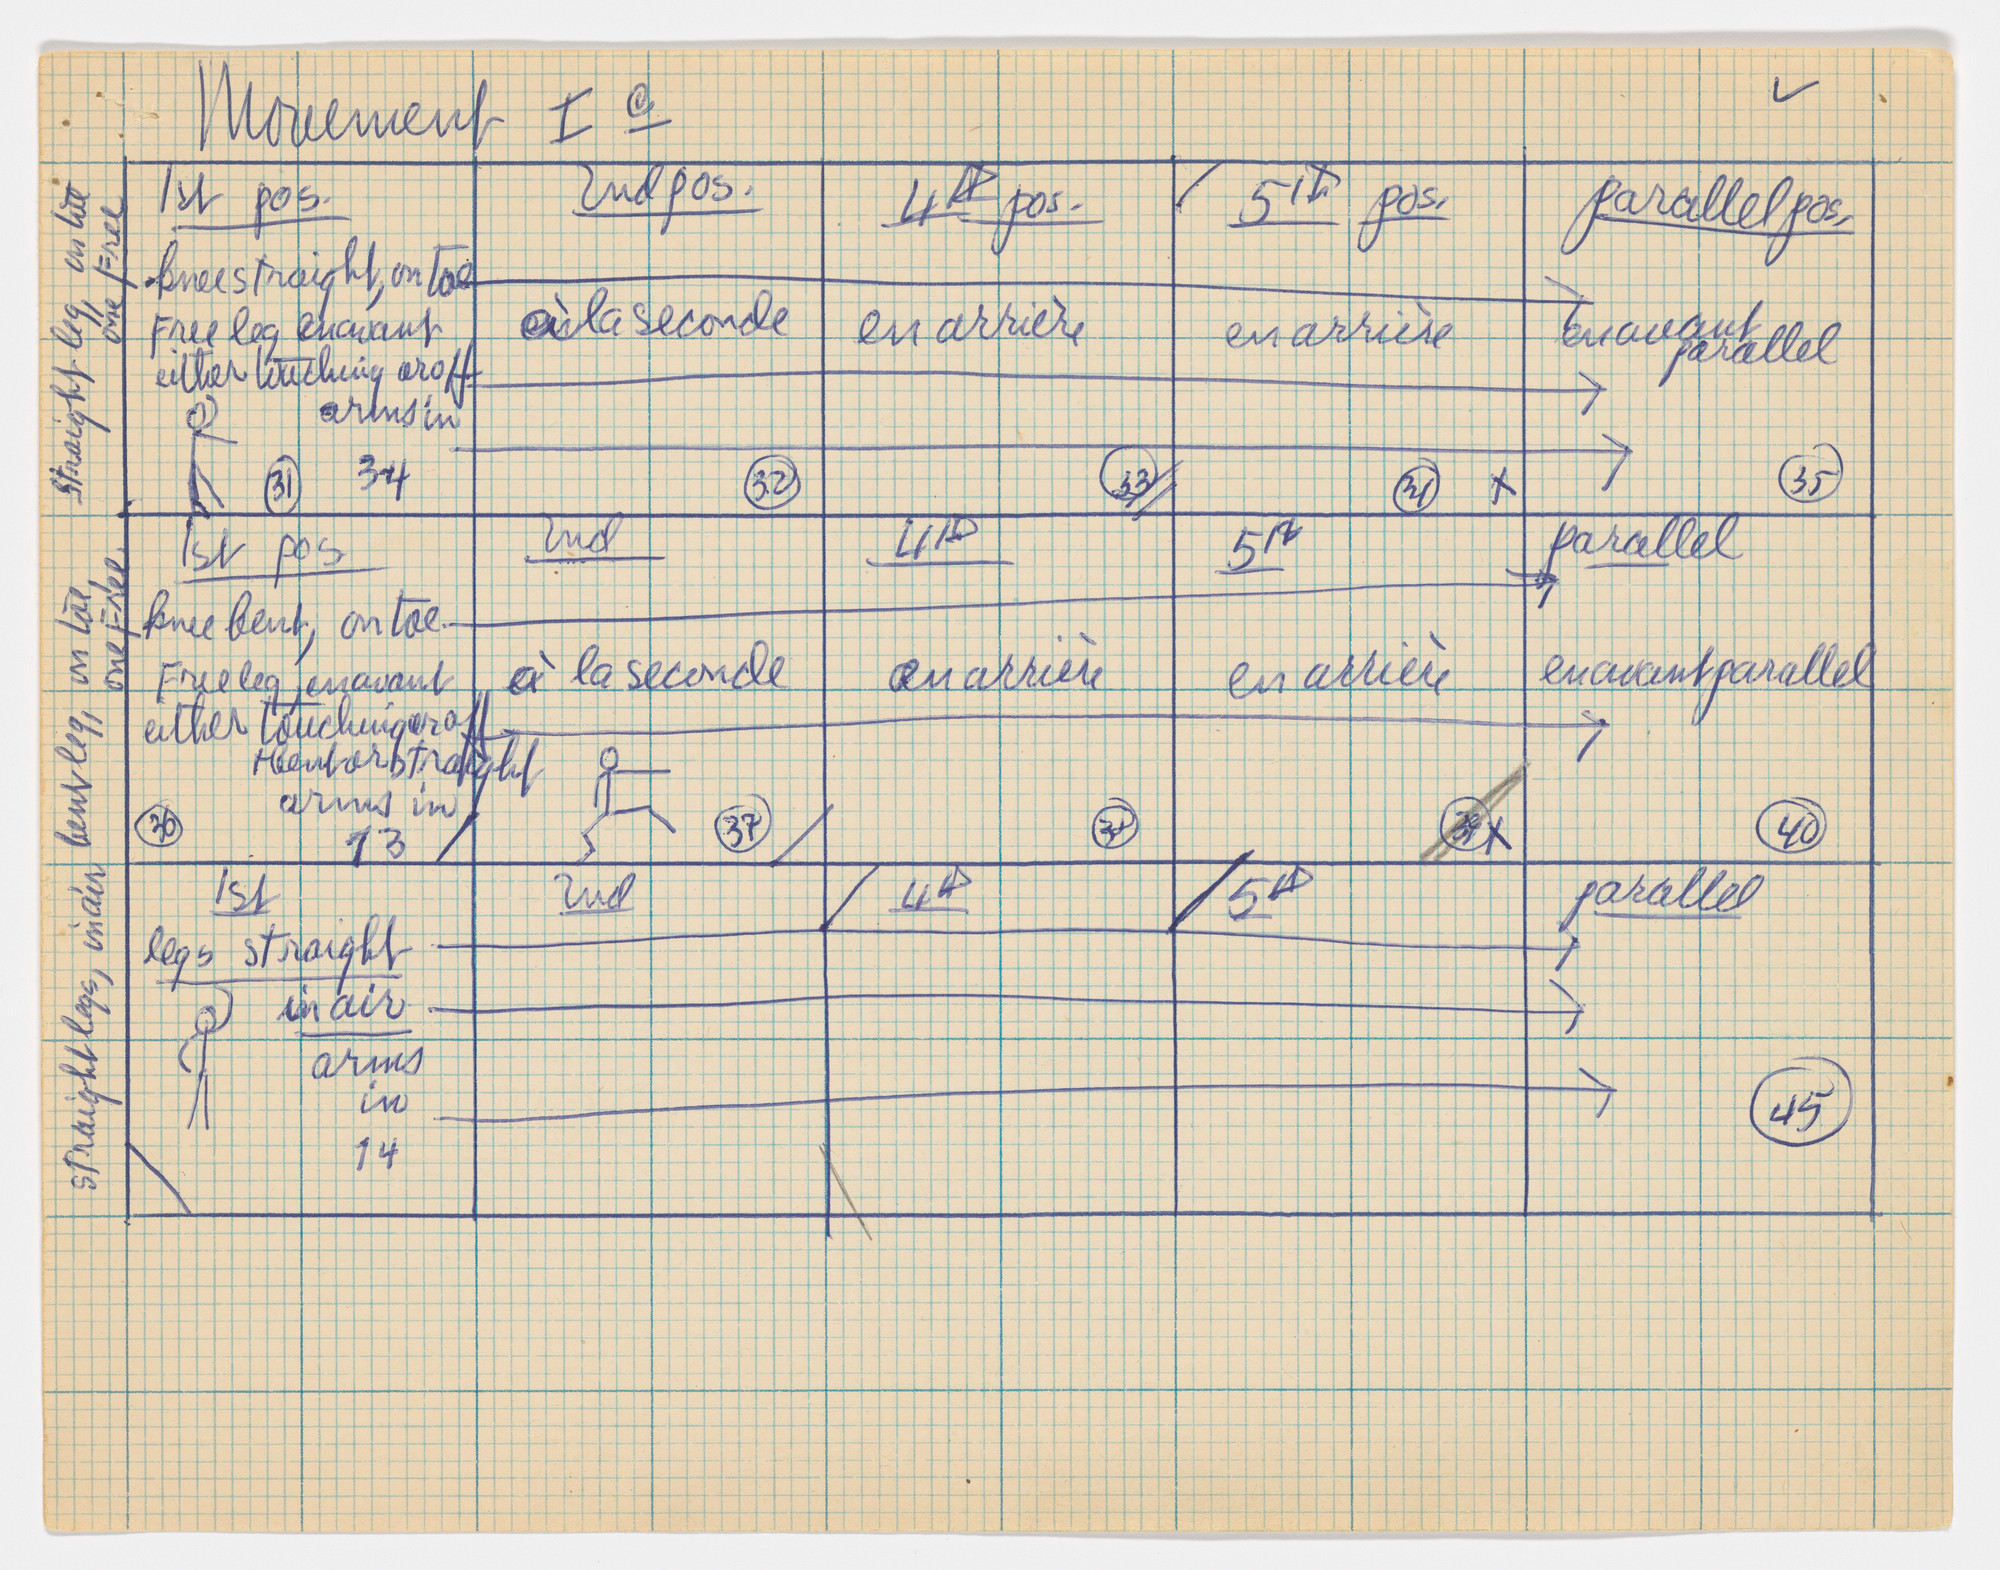 Movement I c
Straight leg, on toe
one free
1st pos.
knee straight, on toe
Free leg en avant
either touching or off
arms in
31 34
2nd pos.
à la seconde
32
4th pos.
en arrière
33
5th pos.
en arrière
x
parallel pos.
en avant
parallel
35
bent leg, on toe
one free
1st pos
knee bent, on toe
Free leg, en avant
either touching or off
bent or straight
arms in
36 13
2nd
à la seconde
37
4th
en arrière
38
5th
en arrière
39 x
parallel
en avant parallel
40
straight legs, in air
1st
legs straight
in air
arms
in
14
2nd
4th
5th
parallel
45